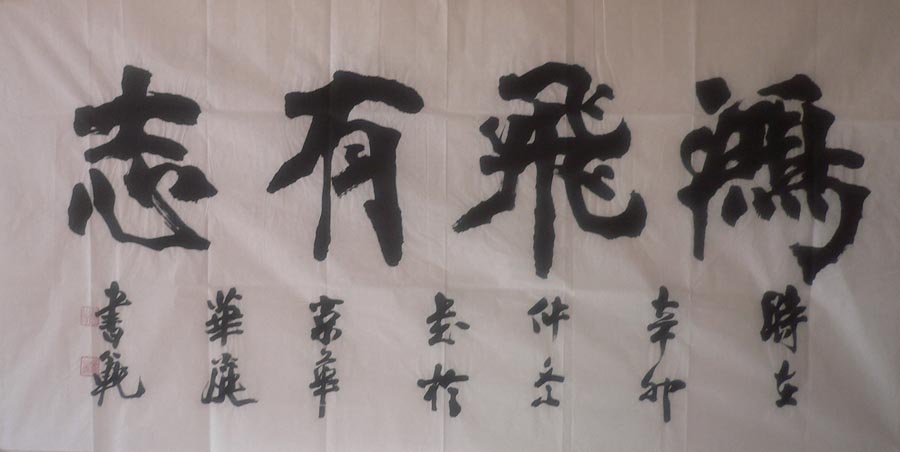 鴻飛有志
時在
辛卯
仲冬
書於
京華
華庭
書範